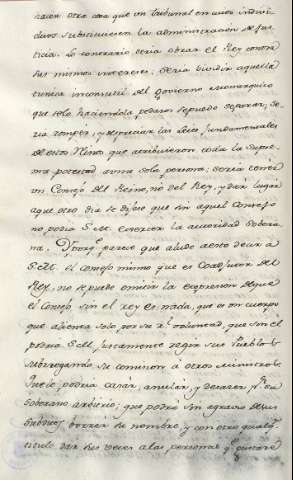 hacen otra cosa que un tribunal en cuios individuos
subsistiesen la administracion de Jus
ticia. Lo contrario seria obrar el Rey contra
sus mismos intereses. Seria dividir aquella
tunica inconsutil del govierno Monarquico
que solo haciendola pedazos se puede separar, se
ria romper, y despreciar las Leies fundamentales
de estos Reinos que atribuieron toda la supre
ma potestad a una sola persona; seria
un Consejo del Reino, no del Rey, y dar lugar
a que otro dia se dijese que sin aquel Consejo
no podia S.M. exercer la autoridad sobera
na. Y porq.e parece que alude a esto decir a
S.M. el consejo mismo que es Coadjutor del
Rey, no se puede omitir la expresion de que
el Consejo sin el rey es nada, que es un cuerpo
que alienta solo por su r.l voluntad, que sin el
podria S.M. justamente regir sus Pueblos
subrogando su comision a otros Ministros
Juezes; podria casar, anular, y desacer p.r su
soberano arbitrio; que podria sin agravio de sus
borrar su nombre y con otro qualq.a
titulo dar sus veces a las personas q.e gustare